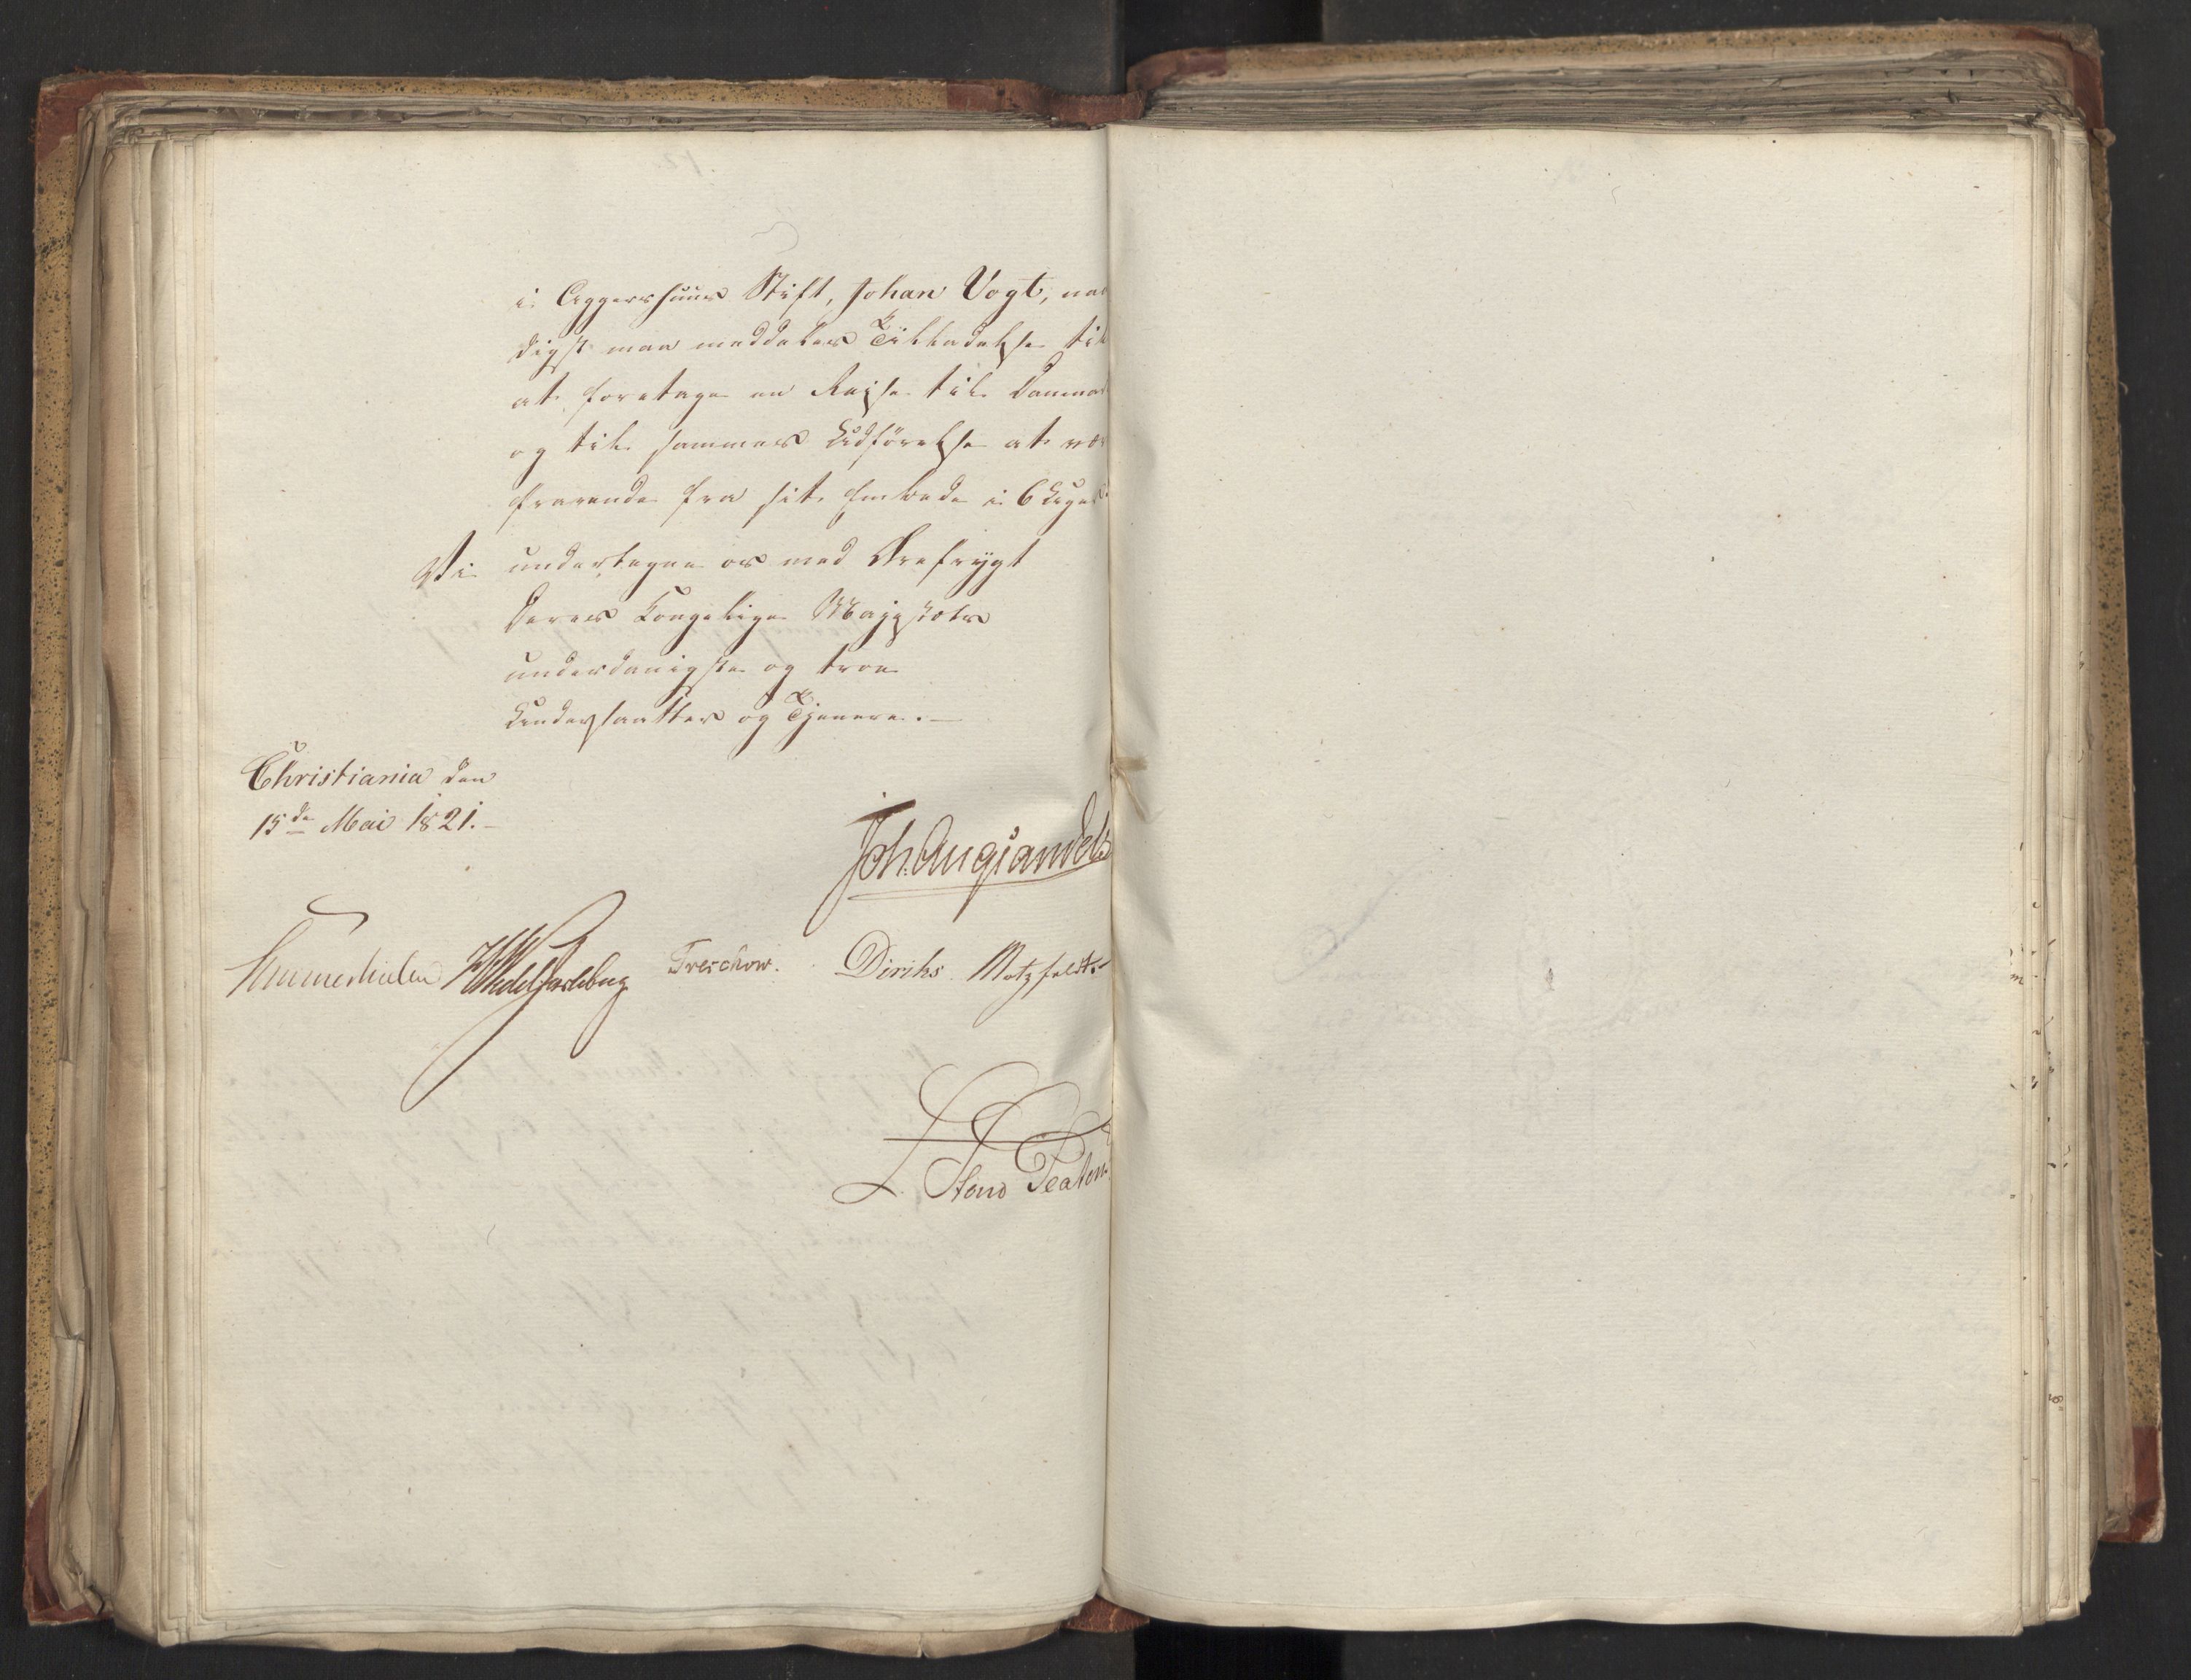 i Aggershuus Stift, Johan Vogt, naa
digst maa meddeles Tilladelse til
at foretage en Reise til Danma
og til sammes Udförelse at væ
fraværende fra sit Embede i 6 Uger
Vi undertegne os med Ærefrygt
Deres Kongelige Majestæts
underdanigste og troe
Undersaatter og Tjenere.
Christiania den
15de Mai 1821.
Joh. Aug Sandels
Sommerhielm HWedelJarlsberg Treschow. Diriks Motzfeldt.
L.